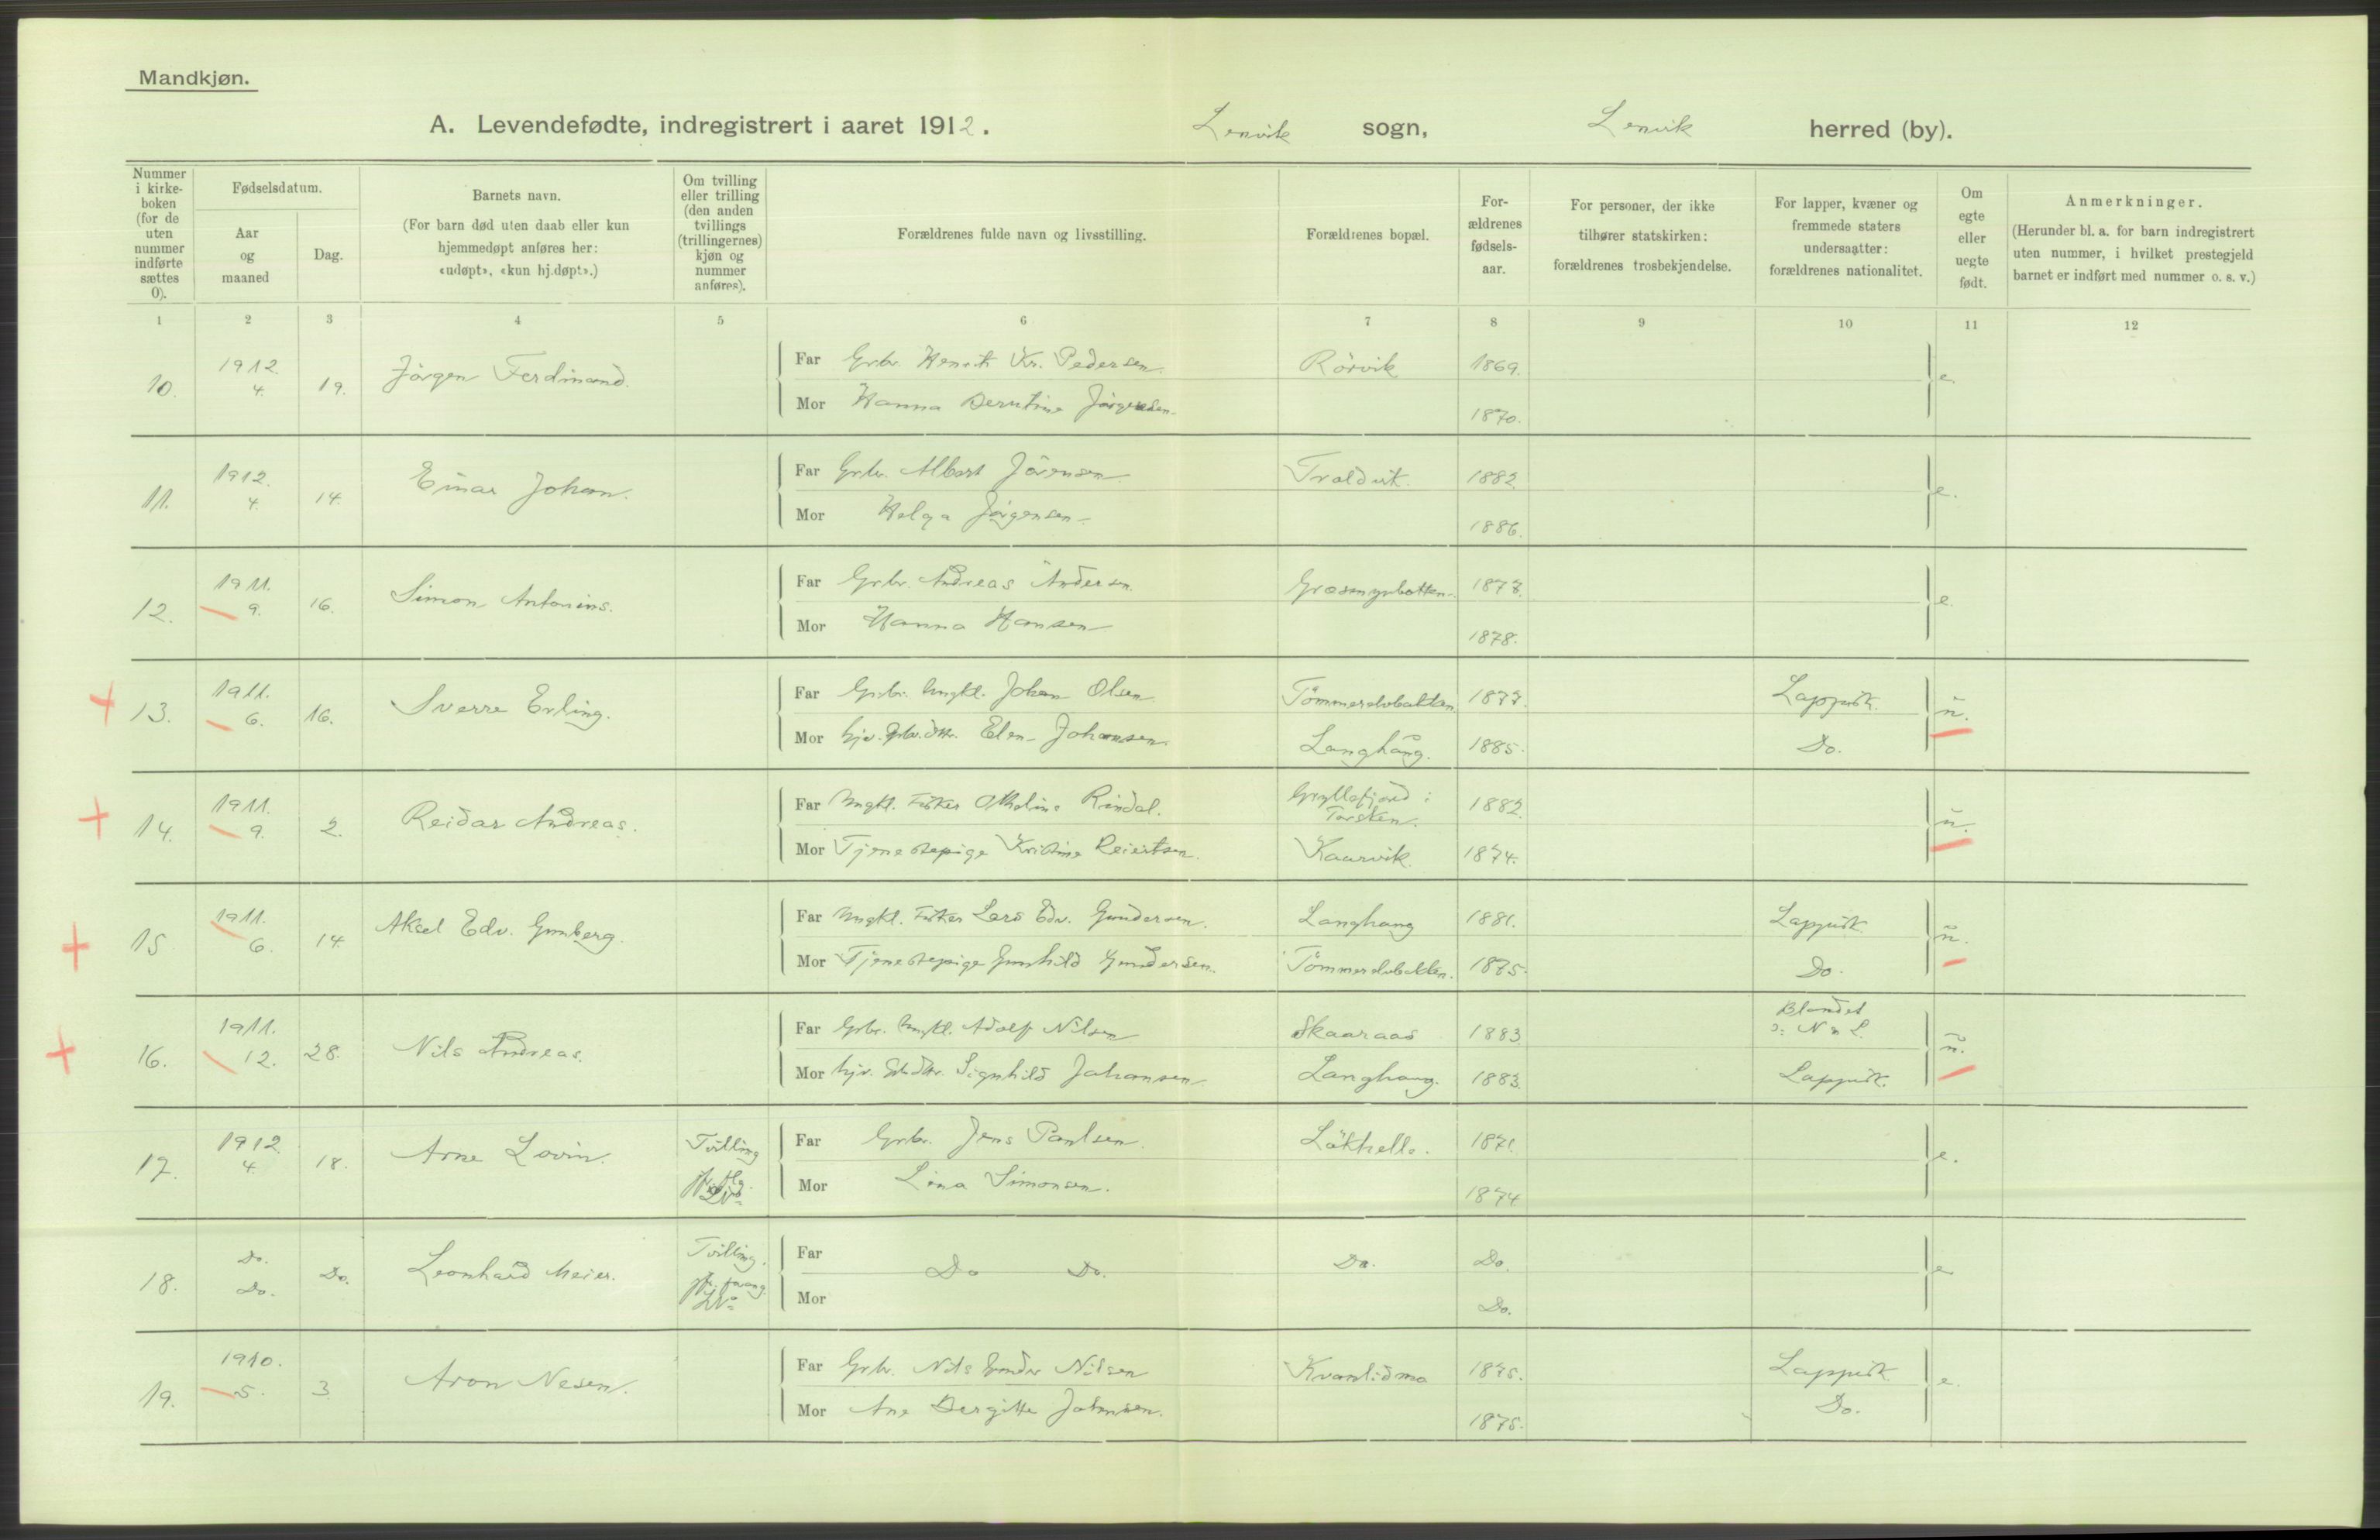 Mandkjøn.
A. Levendefødte, indregistrert i aaret 1912. Lenvik sogn, Lenvik herred (by).
Nummer i kirke-boken (for de uten nummer indførte sættes 0).
Fødselsdatum.
Aar og maaned
Dag.
Barnets navn.
(For barn død uten daab eller kun hjemmedøpt anføres her: «udøpt», «kun hj.døpt».)
Om tvilling eller trilling (den anden tvillings (trillingernes) kjøn og nummer anføres).
Forældrenes fulde navn og livsstilling.
Forældrenes bopæl.
For-ældrenes fødsels-aar.
For personer, der ikke tilhører statskirken: forældrenes trosbekjendelse.
For lapper, kvæner og fremmede staters undersaatter: forældrenes nationalitet.
Om egte eller uegte født.
Anmerkninger.
(Herunder bl. a. for barn indregistrert uten nummer, i hvilket prestegjeld barnet er indført med nummer o. s. v.)
1 2 3 4 5 6 7 8 9 10 11 12
10. 1912. 4. 19. Jörgen Ferdinand. Far Grbr. Henrik Kr. Pedersen. Rörvik 1869. e.
Mor Hanna Berntine Jörgensen. 1870.
11. 1912. 4. 14. Einar Johan. Far Grbr. Albert Jörensen Troldvik. 1882 e.
Mor Helga Jörgensen 1886.
12. 1911. 9. 16. Simon Antonius. Far Grbr. Andreas Andersen. 1877. e.
Mor Hanna Hansen 1878.
13. 1911. 6. 16. Sverre Erling. Far Grbr. Ungkl. Johan Olsen Tömmerelvbakken 1877. Lappisk. u.
Mor Elen Johansen. Langhaug. 1885. Do.
14. 1911. 9. 2. Reidar Andreas. Far Ungkl. Fisker Otheline Rindal. Gryllefjord i Torsken. 1882. u.
Mor Tjenestepige Kristine Reiertsen. Kaarvik. 1874.
15 1911. 6. 14. Aksel Edv. Gunberg. Far Ungkl. Fisker Lars Edv. Gundersen. Langhaug 1881. Lappisk. u.
Mor Tjenestepige Gunhild Gundersen. Tömmerelvbakken. 1875. Do.
16. 1911. 12. 28. Nils Andreas. Far Grbr. Ungkl. Adolf Nilsen Skaaraas 1883. Blandet ɔ: N & L. u.
Mor Signhild Johansen Langhaug. 1883. Lappisk.
17. 1912. 4. 18. Arne Lovin. Tvilling Far Grbr. Jens Paulsen. Läkhelle. 1871. e.
Mor Lina Simonsen. 1874
18. Do. Do. Do. Leonhard Meier. Tvilling. Far Do Do. Do. Do. e
Mor Do.
19. 1910. 5. 3. Aron Nesen. Far Grbr. Nils Nilsen Kvanlidmo 1875. Lappisk e.
Mor Ane Bergitte Johansen. 1875. Do.